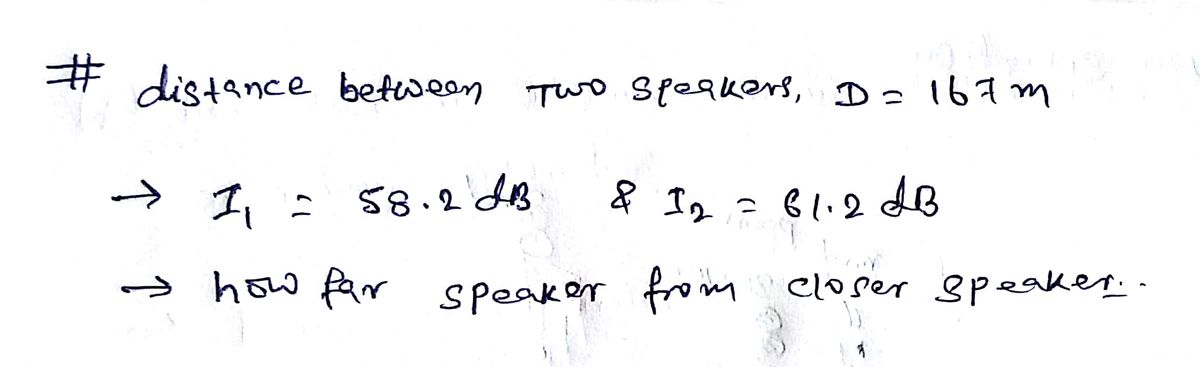 # distance between Two speakers, D = 167 m
→ I₁ = 58.2 dB & I₂ = 61.2 dB
→ how far speaker from closer speaker..